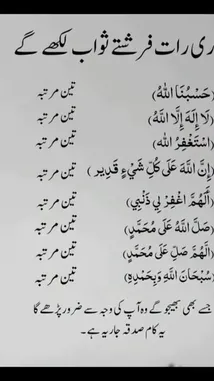 ری رات فرشتے ثواب لکھے گے
(حَسْبُنَا اللهُ) تین مرتبہ
(لَا إِلَهَ إِلَّا اللَّهُ) تین مرتبہ
(اسْتَغْفِرُ الله) تین مرتبہ
(إِنَّ اللَّهَ عَلَى كُلِّ شَيْءٍ قَدِير) تین مرتبہ
(اَلَهُمَّ اغْفِرْ لِي ذَنْبِي) تین مرتبہ
(صَلَّ اللَّهُ عَلَى مُحَمَّدٍ) تین مرتبہ
(الَهُمَّ صَلِّ عَلَى مُحَمَّدٍ) تین مرتبہ
(سُبْحَانَ اللَّهِ وَبِحَمْدِهِ) تین مرتبہ
جسے بھی بھیجو گے وہ آپ کی وجہ سے ضرور پڑھے گا
یہ کام صدقہ جاریہ ہے۔